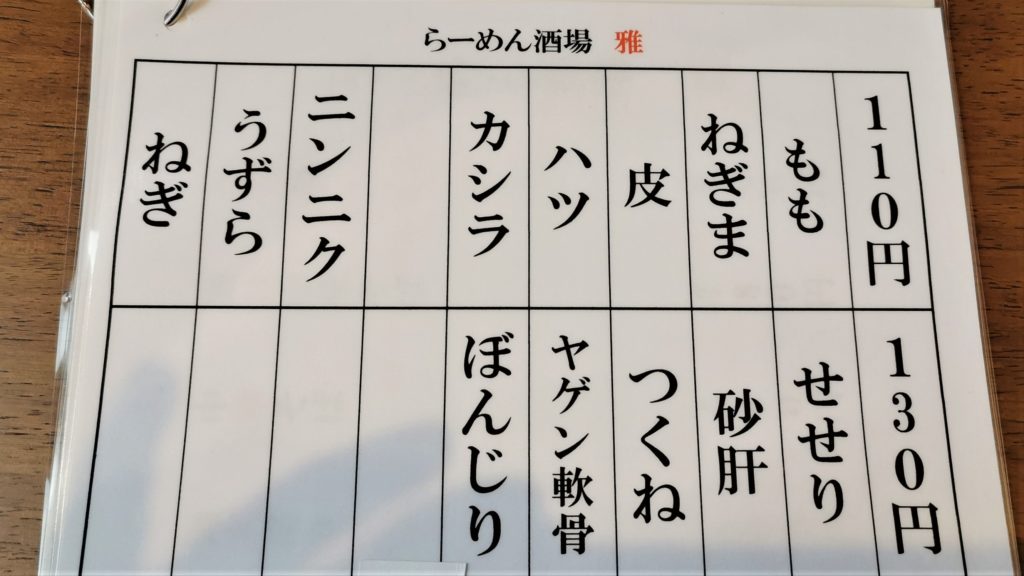 らーめん酒場 雅
110円
もも
ねぎま
皮
ハツ
カシラ
ニンニク
うずら
ねぎ
130円
せせり
砂肝
つくね
ヤゲン軟骨
ぼんじり